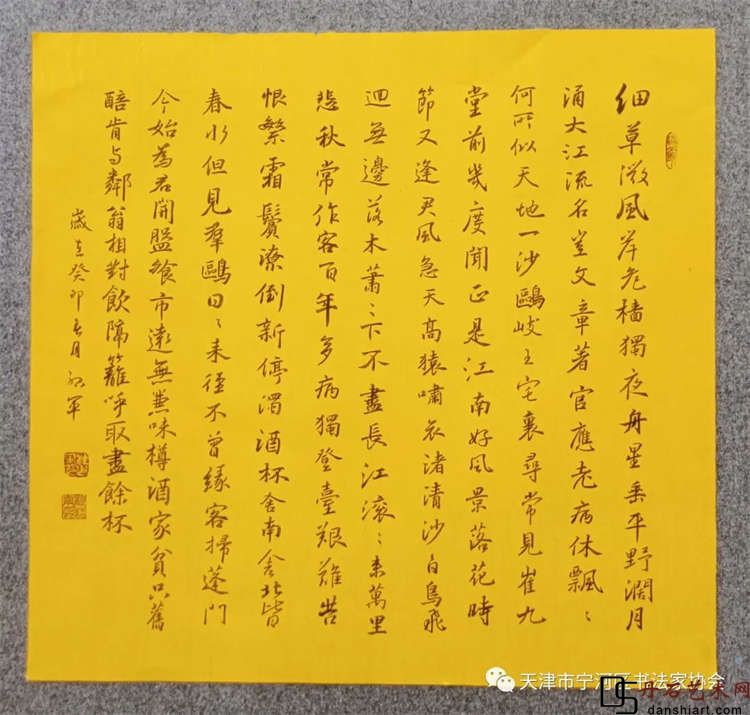 细草微風岸危檣獨夜舟星垂平野濶月
涌大江流名豈文章著官應老病休飄〻
何所似天地一沙鷗岐王宅裏尋常見崔九
堂前幾度聞正是江南好風景落花時
節又逢君風急天高猿嘯哀渚清沙白鳥飛
迴無邊落木蕭〻下不盡長江滚〻来萬里
悲秋常作客百年多病獨登臺艱難苦
恨繁霜鬢潦倒新停濁酒杯舍南舍北皆
春水但見羣鷗日〻来徑不曾緣客掃蓬門
今始為君開盤飧市遠無兼味樽酒家貧只舊
醅肯与鄰翁相對飲隔籬呼取盡餘杯
歲在癸卯月軍
天津市宁河区书法家协会
丹石艺术网
danshiart.com